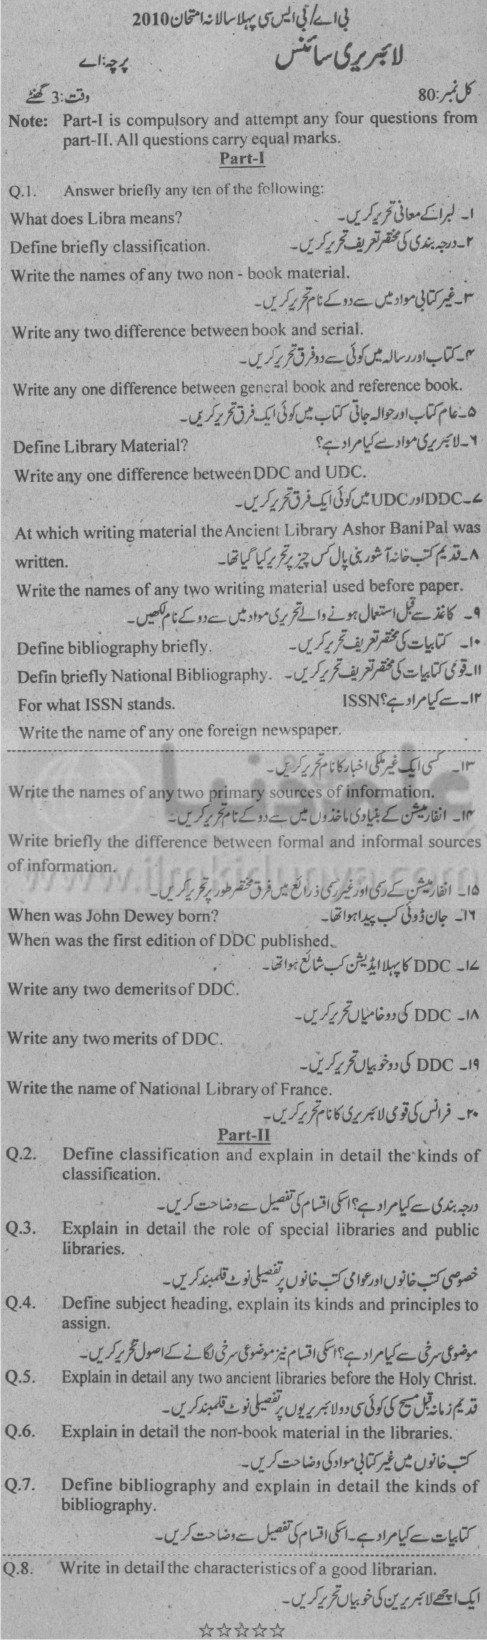 بی اے/بی ایس سی پہلا سالانہ امتحان 2010
لائبریری سائنس
پرچہ: اے
کل نمبر: 80
وقت: 3 گھنٹے
Note: Part-I is compulsory and attempt any four questions from
part-II. All questions carry equal marks.
Part-I
Q.1. Answer briefly any ten of the following:
What does Libra means? ۱۔ لبرا کے معانی تحریر کریں۔
Define briefly classification. ۲۔ درجہ بندی کی مختصر تعریف تحریر کریں۔
Write the names of any two non - book material.
۳۔ غیر کتابی مواد میں سے دو کے نام تحریر کریں۔
Write any two difference between book and serial.
۴۔ کتاب اور رسالہ میں کوئی سے دو فرق تحریر کریں۔
Write any one difference between general book and reference book.
۵۔ عام کتاب اور حوالہ جاتی کتاب میں کوئی ایک فرق تحریر کریں۔
Define Library Material? ۶۔ لائبریری مواد سے کیا مراد ہے؟
Write any one difference between DDC and UDC.
۷۔ DDC اور UDC میں کوئی ایک فرق تحریر کریں۔
At which writing material the Ancient Library Ashor Bani Pal was
written. ۸۔ قدیم کتب خانہ آشور بنی پال کس چیز پر تحریر کیا گیا تھا۔
Write the names of any two writing material used before paper.
۹۔ کاغذ سے قبل استعمال ہونے والے تحریری مواد میں سے دو کے نام لکھیں۔
Define bibliography briefly. ۱۰۔ کتابیات کی مختصر تعریف تحریر کریں۔
Defin briefly National Bibliography. ۱۱۔ قومی کتابیات کی مختصر تعریف تحریر کریں۔
For what ISSN stands. ۱۲۔ سے کیا مراد ہے؟ ISSN
Write the name of any one foreign newspaper.
۱۳۔ کسی ایک غیر ملکی اخبار کا نام تحریر کریں۔
Write the names of any two primary sources of information.
۱۴۔ انفارمیشن کے بنیادی ماخذوں میں سے دو کے نام تحریر کریں۔
Write briefly the difference between formal and informal sources
of information.
۱۵۔ انفارمیشن کے رسمی اور غیر رسمی ذرائع میں فرق مختصر طور پر تحریر کریں۔
When was John Dewey born? ۱۶۔ جان ڈوئی کب پیدا ہوا تھا۔
When was the first edition of DDC published.
۱۷۔ DDC کا پہلا ایڈیشن کب شائع ہوا تھا۔
Write any two demerits of DDC.
۱۸۔ DDC کی دو خامیاں تحریر کریں۔
Write any two merits of DDC.
۱۹۔ DDC کی دو خوبیاں تحریر کریں۔
Write the name of National Library of France.
۲۰۔ فرانس کی قومی لائبریری کا نام تحریر کریں۔
Part-II
Q.2. Define classification and explain in detail the kinds of
classification.
درجہ بندی سے کیا مراد ہے؟ اسکی اقسام کی تفصیل سے وضاحت کریں۔
Q.3. Explain in detail the role of special libraries and public
libraries.
خصوصی کتب خانوں اور عوامی کتب خانوں پر تفصیلی نوٹ قلمبند کریں۔
Q.4. Define subject heading, explain its kinds and principles to
assign.
موضوعی سرخی سے کیا مراد ہے؟ اسکی اقسام نیز موضوعی سرخی لگانے کے اصول تحریر کریں۔
Q.5. Explain in detail any two ancient libraries before the Holy Christ.
قدیم زمانہ قبل مسیح کی کوئی سی دو لائبریریوں پر تفصیلی نوٹ قلمبند کریں۔
Q.6. Explain in detail the non-book material in the libraries.
کتب خانوں میں غیر کتابی مواد کی وضاحت کریں۔
Q.7. Define bibliography and explain in detail the kinds of
bibliography.
کتابیات سے کیا مراد ہے۔ اسکی اقسام کی تفصیل سے وضاحت کریں۔
Q.8. Write in detail the characteristics of a good librarian.
ایک اچھے لائبریرین کی خوبیاں تحریر کریں۔
علم کی دنیا
www.ilmkidunya.com